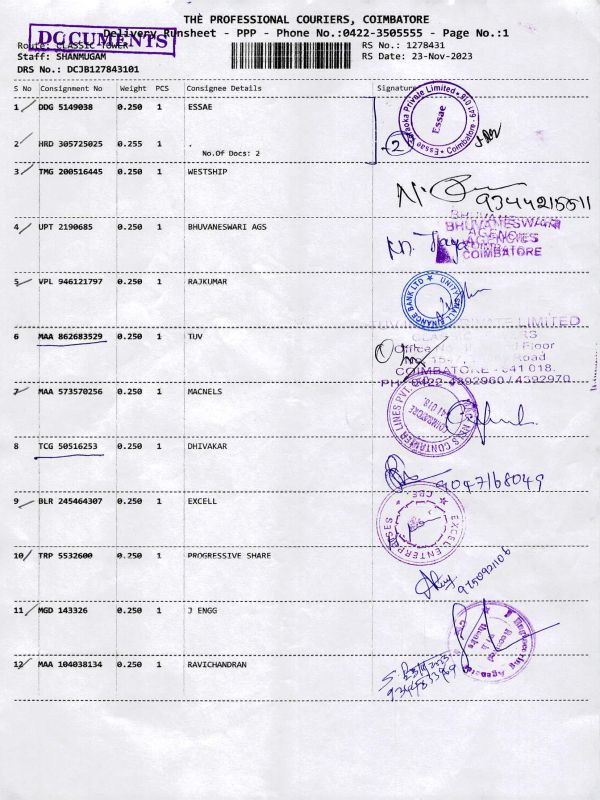 THE PROFESSIONAL COURIERS, COIMBATORE
DOCUMENTS
Delivery Runsheet - PPP - Phone No.:0422-3505555 - Page No.:1
Route: CLASSIC TOWER
RS No.: 1278431
Staff: SHANMUGAM
RS Date: 23-Nov-2023
DRS No.: DCJB127843101
S No Consignment No Weight PCS Consignee Details Signature
1 DDG 5149038 0.250 1 ESSAE
Essae
Coimbatore - 641 018
2 HRD 305725025 0.255 1 .
No.Of Docs: 2
2
3 TMG 200516445 0.250 1 WESTSHIP
9344215511
4 UPT 2190685 0.250 1 BHUVANESWARI AGS
BHUVANESWARI
AGENCIES
COIMBATORE
5 VPL 946121797 0.250 1 RAJKUMAR
UNITY SMALL FINANCE BANK LTD
6 MAA 862683529 0.250 1 TUV
LIMITED
Office Floor
Road
COIMBATORE - 641 018.
PH : 0422-4392960 / 4392970
7 MAA 573570256 1 MACNELS
0.250
MACNELS CONTAINER LINES PVT.
COIMBATORE
641 018.
8 TCG 50516253 0.250 1 DHIVAKAR
9047168049
9 BLR 245464307 0.250 1 EXCELL
EXCEL ENTERPRISES
CBE
10 TRP 5532600 0.250 1 PROGRESSIVE SHARE
9750921106
11 MGD 143326 0.250 1 J ENGG
Engineering Agencies
12 MAA 104038134 0.250 1 RAVICHANDRAN